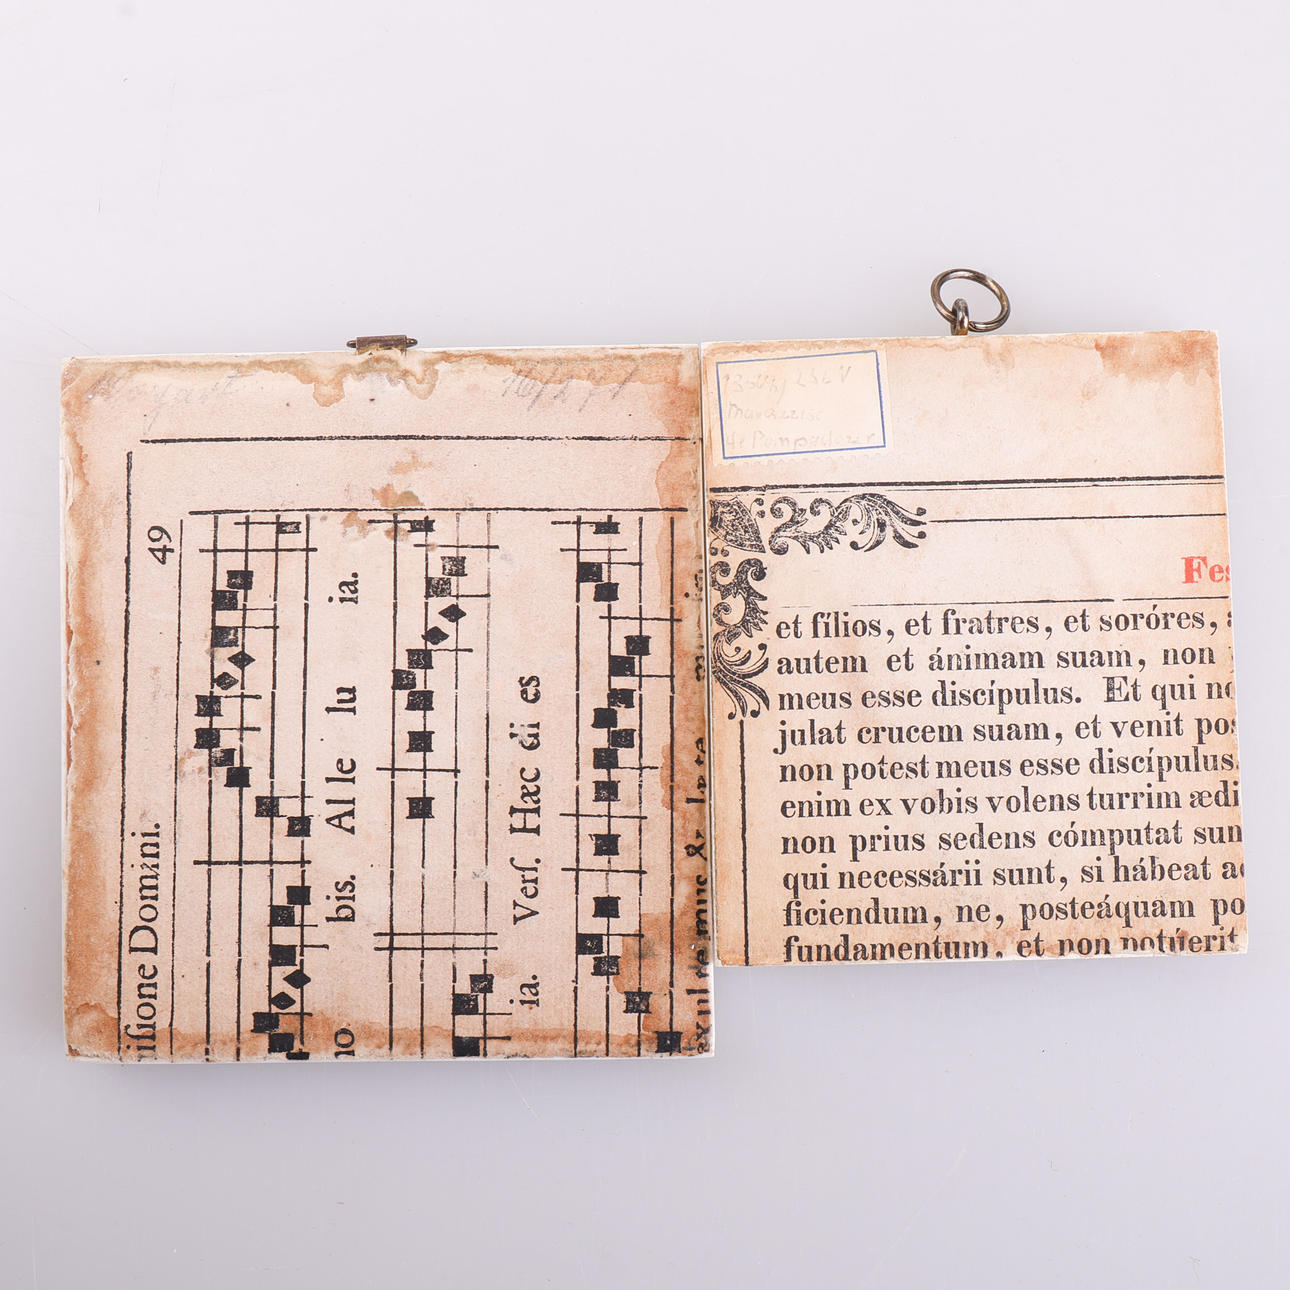 49
iſione Domini.
no bis. Al le lu ia.
ia. Verſ. Hæc di es
exul te mus &
de Pompadour
Fes
et fílios, et fratres, et soróres,
autem et ánimam suam, non
meus esse discípulus. Et qui no
julat crucem suam, et venit pos
non potest meus esse discípulus.
enim ex vobis volens turrim ædi
non prius sedens cómputat sum
qui necessárii sunt, si hábeat ad
ficiendum, ne, posteáquam po
fundamentum, et non potúerit